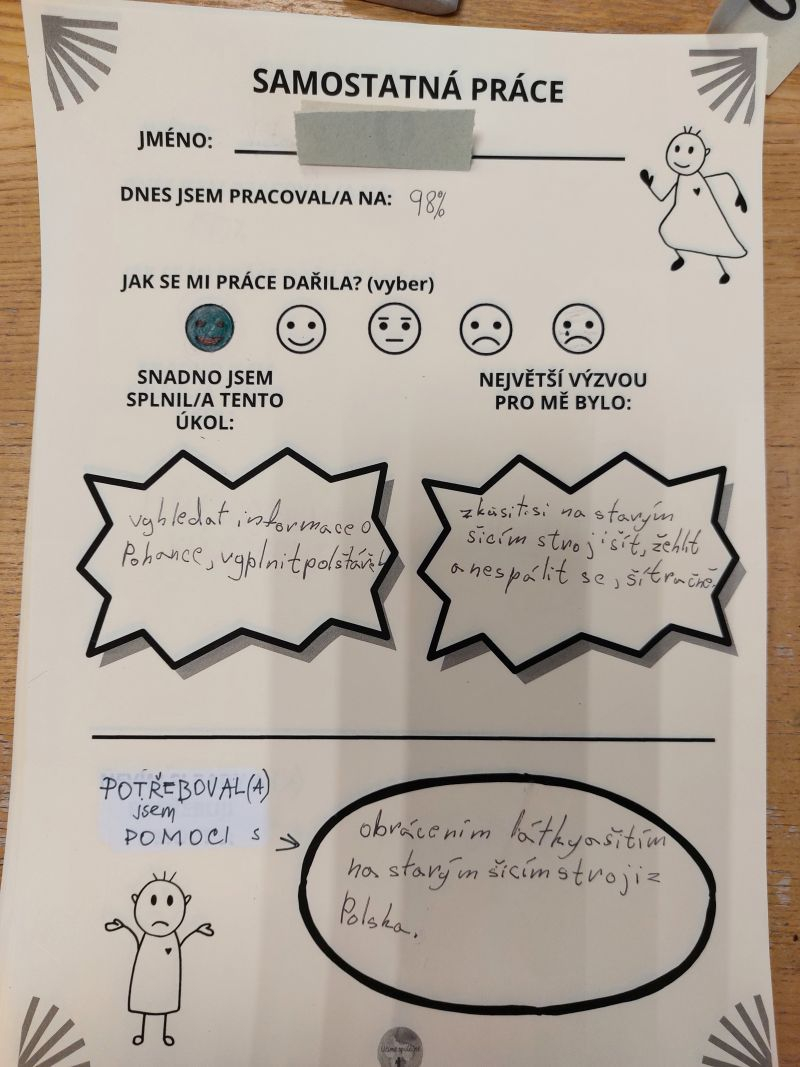 SAMOSTATNÁ PRÁCE
JMÉNO:
DNES JSEM PRACOVAL/A NA: 98%
JAK SE MI PRÁCE DAŘILA? (vyber)
SNADNO JSEM
SPLNIL/A TENTO
ÚKOL:
vyhledat informace o
Pohance, vyplnit polštářek
NEJVĚTŠÍ VÝZVOU
PRO MĚ BYLO:
zkusit si na starým
šicím stroji šít, žehlit
a nespálit se, šít ručně.
POTŘEBOVAL(A)
jsem
POMOCI s
obrácením látky a šitím
na starým šicím stroji z
Polska.
Učíme společně